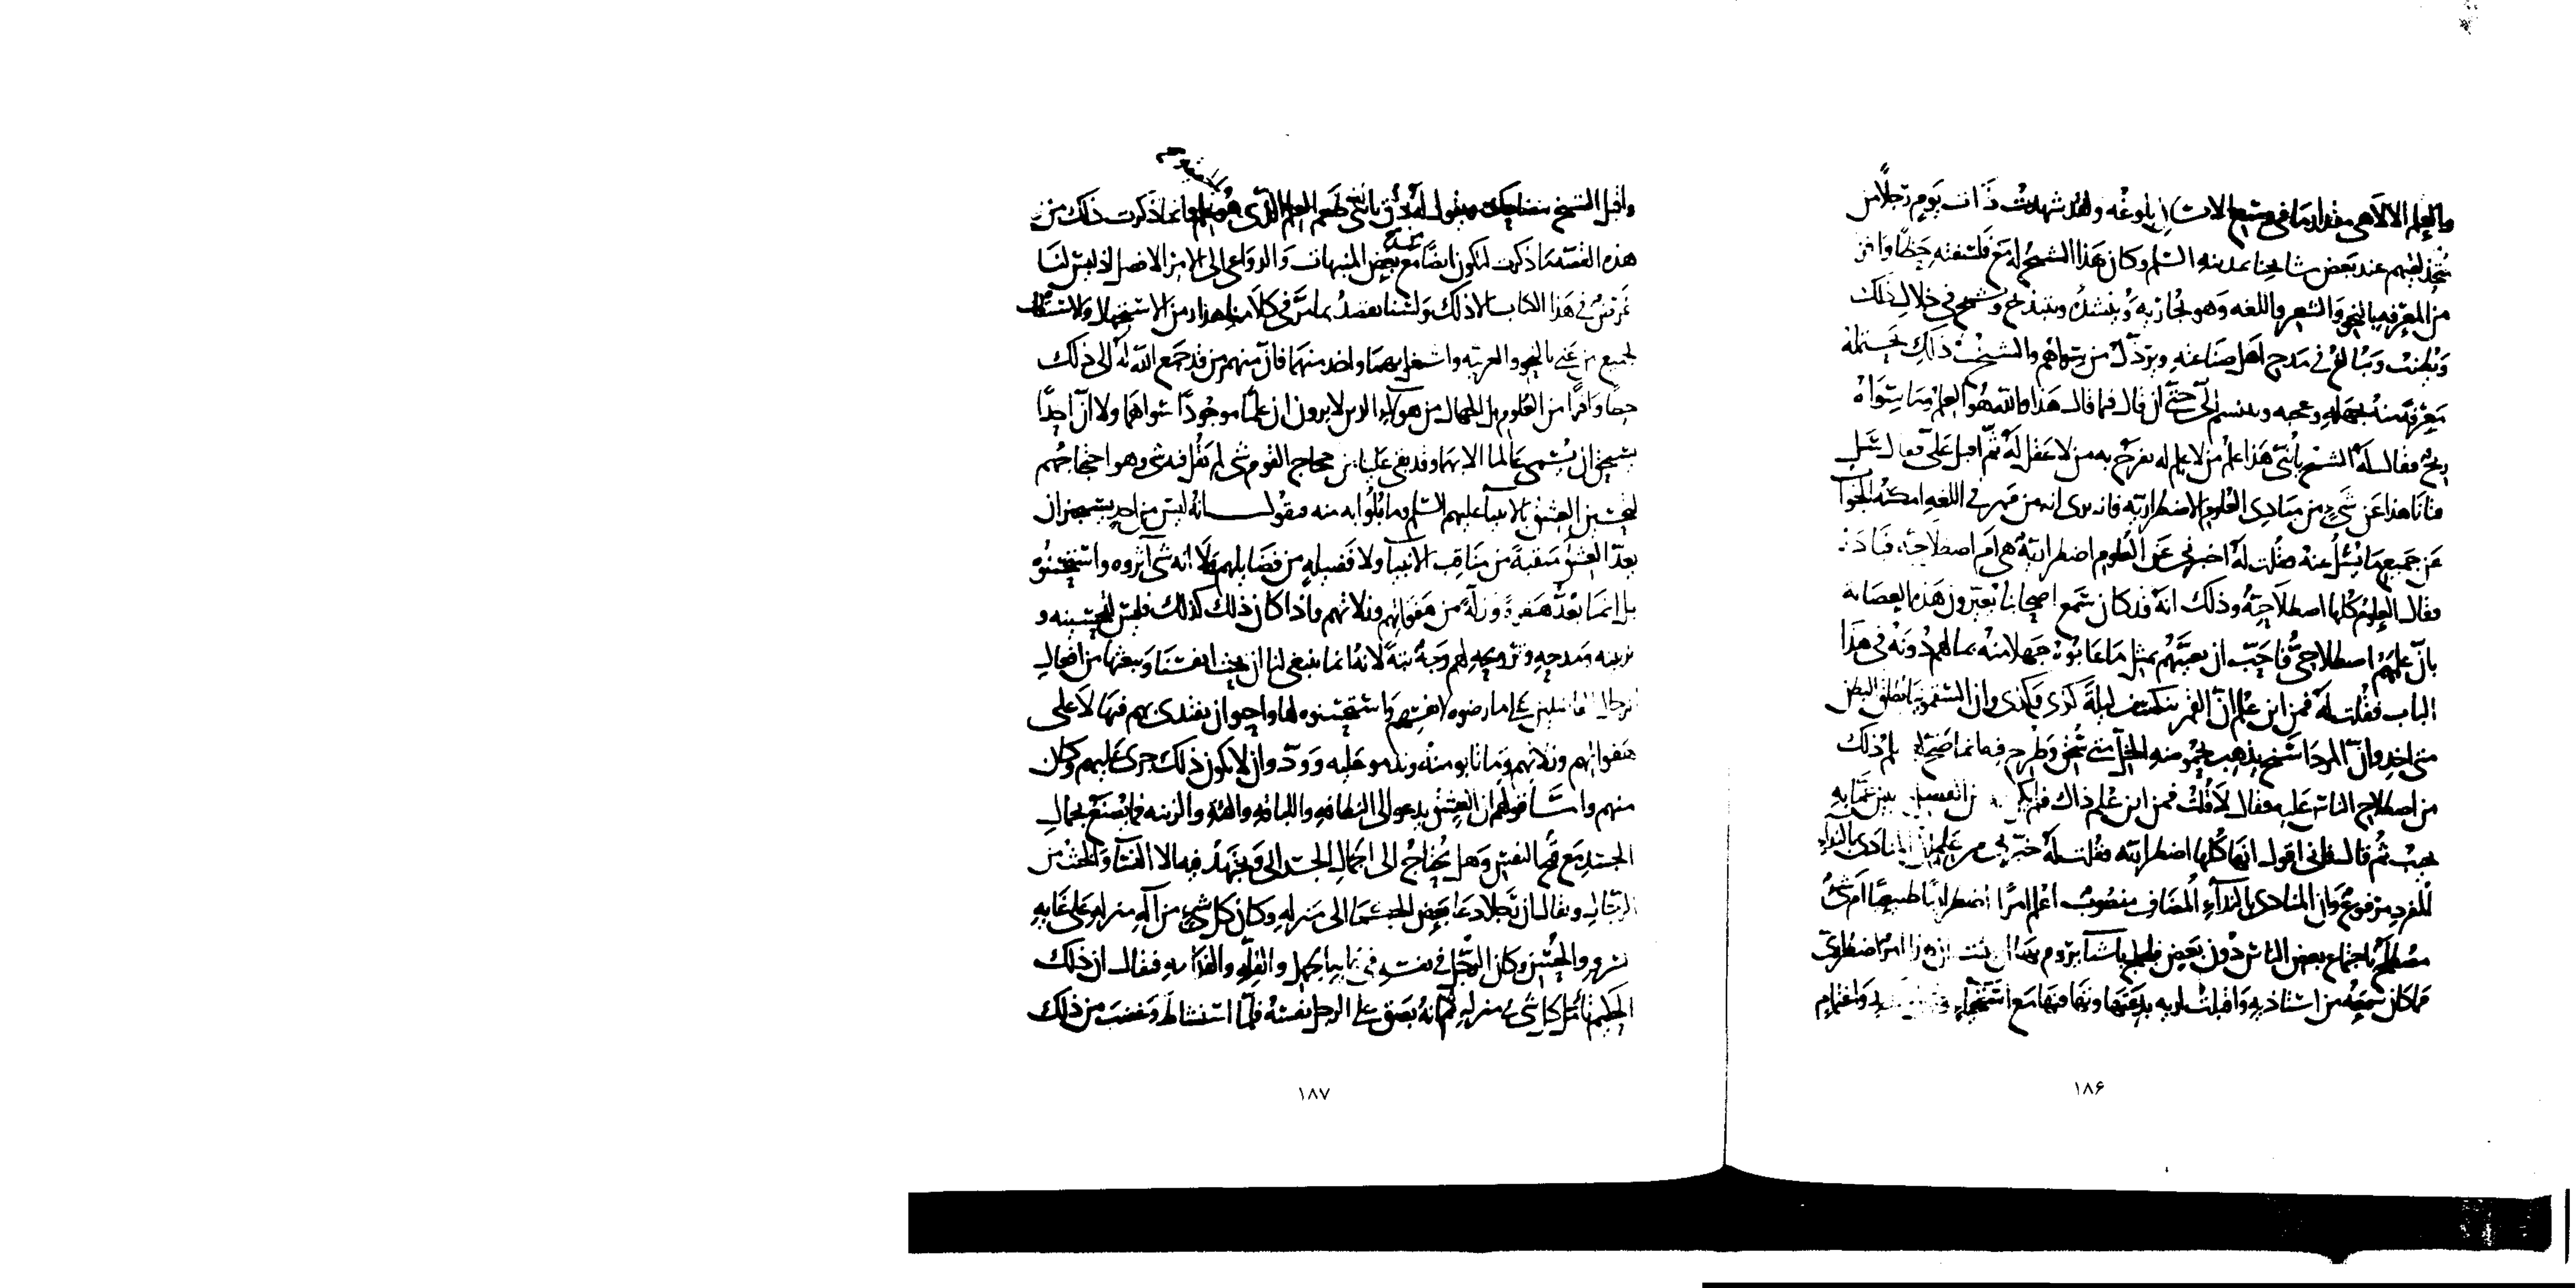 والعلم الالاهى مقدار ما فى وسع الانسان بلوغه ولقد شهدت ذات يوم رجلا من
متحذلقيهم عند بعض مشايخنا بمدينة السلم وكان لهذا الشيخ مع فلسفته حظا وافر
من المعرفه بالنحو والشعر واللغه وهو يجاريه وينشده ويبذخ ويشمخ فى خلال ذلك
ويطنب ويبالغ فى مدح اهل صناعته ويرذل من سواهم والشيخ فى ذلك يحتمله
معرفة منه بجهله وعجبه ويتبسم الى حتى ان قال فيما قال هذا والله هو العلم وما سواه
ريح فقال له الشيخ يا بنى هذا علم من لا علم له ويفرح به من لا عقل له ثم اقبل على وقال سل
فتانا هذا عن شىء من مبادى العلوم الاضطراريه فانه يرى ان من مهر فى اللغه امكنه الجواب
عن جميع ما يسئل عنه فقلت له اخبرنى عن العلوم اضطرارية هى ام اصطلاحية فبادر
فقال العلوم كلها اصطلاحية وذلك انه قد كان سمع اصحابنا يعيرون هذه العصابه
بان علمهم اصطلاحى فاحب ان يعيبهم بمثل ما عابوه جهلا منه بما لهم دونه فى هذا
الباب فقلت له فمن اين علم ان القمر ينكسف ليلة كذى وكذى وان السقمونيا يطلق البطن
متى اخذ وان المرداسنج يذهب بحموضة الخل متى سحق وطرح فيه انما صح علم ذلك
من اصطلاح الناس عليه فقال لا قلت فمن اين علم ذاك فلم يكن
ثم قال فانى اقول انها كلها اضطراريه فقلت له خبرنى عمن علم ان المنادى بالنداء
المفرد مرفوع وان المنادى بالنداء المضاف منصوب اعلم امرا اضطراريا طبيعيا ام شئ
مصطلح باجتماع بعض الناس دون بعض فلجلج باشياء يروم بها ان يثبت ان هذا امر اضطرارى
مما كان سمعه من استاذيه واقبلت اريه تداعيها وتهافتها مع
١٨۶
واقبل الشيخ يتضاحك ويقول له ذق يا بنى طعم العلم الذى هو علم وانما ذكرت ذلك من
هذه القصه ما ذكرت ليكون ايضا مع بعض المنبهات والدواعى الى الامر الافضل اذ ليس لنا
غرض فى هذا الكتاب الا ذلك ولسنا نقصد بما مر فى كلامنا هذا من الاستجهال والاستنقاص
لجميع من عنى بالنحو والعربيه واشتغل بهما واخذ منهما فان منهم من قد جمع الله له الى ذلك
حظا وافرا من العلوم بل للجهال من هؤلاء الذين لا يرون ان علما موجودا سواهما ولا ان احدا
يستحق ان يسمى عالما الا بهما وقد بقى علينا من حجاج القوم شى لم نقل فيه شى وهو احتجاجهم
لتحسين العشق بالانبيا عليهم السلم وما بلوا به منه فنقول انه ليس من احد يستجيز ان
يعد العشق منقبة من مناقب الانبيا ولا فضيله من فضايلهم ولا انه شى آثروه واستحسنوه
بل انما يعد هفوة وزلة من هفواتهم وزلاتهم واذا كان ذلك كذلك فليس لتحسينه و
تزيينه ومدحه وترويجه بهم وجه بتة لانه انما ينبغى لنا ان نحث انفسنا ونبعثها من افعال
الرجال الفاضلين على ما رضوه لانفسهم واستحسنوه لها واحبوا ان يقتدى بهم فيها لا على
هفواتهم وزلاتهم وما تابوا منه وندموا عليه وودوا ان لا يكون ذلك جرى عليهم وكان
منهم واما قولهم ان العشق يدعو الى النظافه واللباقه والهيئه والزينه فما يصنع بجمال
الجسد مع قبح النفس وهل يحتاج الى الجمال الجسدانى ويجتهد فيه الا النسآ والخنث من
الرجال ويقال ان رجلا دعا بعض الحكما الى منزله وكان كل شى من آلة منزله على غايه
السرو والحسن وكان الرجل فى نفسه فى غايه الجهل والبله والفدامه فيقال ان ذلك
الحكيم تامل كل شى فى منزله ثم انه بصق على الرجل نفسه فلما استشاط وغضب من ذلك
١٨٧